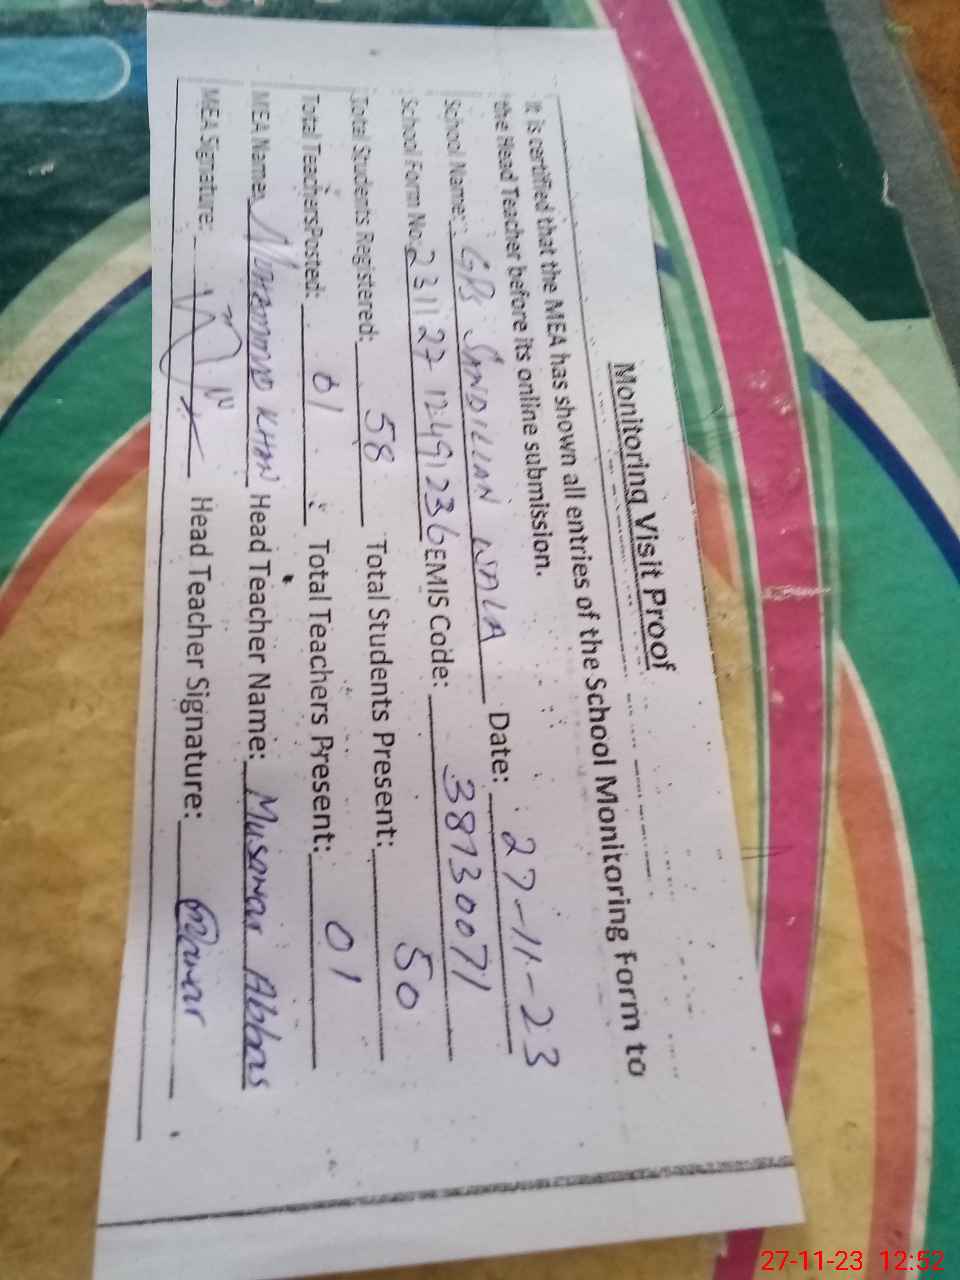 Monitoring Visit Proof
It is certified that the MEA has shown all entries of the School Monitoring Form to
the Head Teacher before its online submission.
School Name: GPS SANDILLAN WALA Date: 27-11-23
School Form No: 23112712491236 EMIS Code: 38730071
Total Students Registered: 58 Total Students Present: 50
Total TeachersPosted: 01 Total Teachers Present: 01
MEA Name: MOHAMMAD KHAN Head Teacher Name: Musawar Abbas
MEA Signature: Head Teacher Signature:
27-11-23 12:52